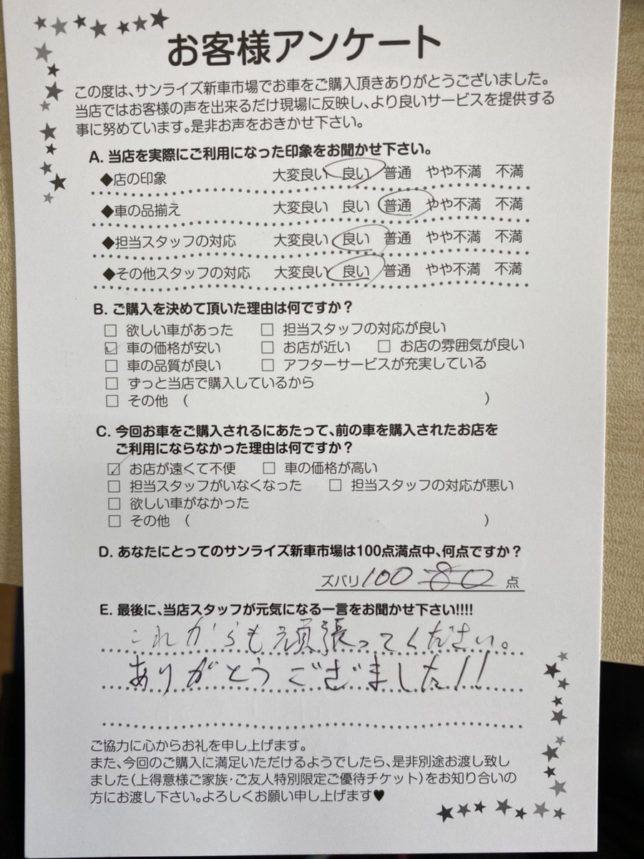 お客様アンケート
この度は、サンライズ新車市場でお車をご購入頂きありがとうございました。
当店ではお客様の声を出来るだけ現場に反映し、より良いサービスを提供する
事に努めています。是非お声をおきかせ下さい。
A. 当店を実際にご利用になった印象をお聞かせ下さい。
◆店の印象 大変良い 良い 普通 やや不満 不満
◆車の品揃え 大変良い 良い 普通 やや不満 不満
◆担当スタッフの対応 大変良い 良い 普通 やや不満 不満
◆その他スタッフの対応 大変良い 良い 普通 やや不満 不満
B. ご購入を決めて頂いた理由は何ですか？
□ 欲しい車があった □ 担当スタッフの対応が良い
☑ 車の価格が安い □ お店が近い □ お店の雰囲気が良い
□ 車の品質が良い □ アフターサービスが充実している
□ ずっと当店で購入しているから
□ その他 （ ）
C. 今回お車をご購入されるにあたって、前の車を購入されたお店を
ご利用にならなかった理由は何ですか？
☑ お店が遠くて不便 □ 車の価格が高い
□ 担当スタッフがいなくなった □ 担当スタッフの対応が悪い
□ 欲しい車がなかった
□ その他 （ ）
D. あなたにとってのサンライズ新車市場は100点満点中、何点ですか？
ズバリ 100 80 点
E. 最後に、当店スタッフが元気になる一言をお聞かせ下さい!!!!
これからも頑張ってください。
ありがとうございました!!
ご協力に心からお礼を申し上げます。
また、今回のご購入に満足いただけるようでしたら、是非別途お渡し致し
ました（上得意様ご家族・ご友人特別限定ご優待チケット）をお知り合いの
方にお渡し下さい。よろしくお願い申し上げます♥